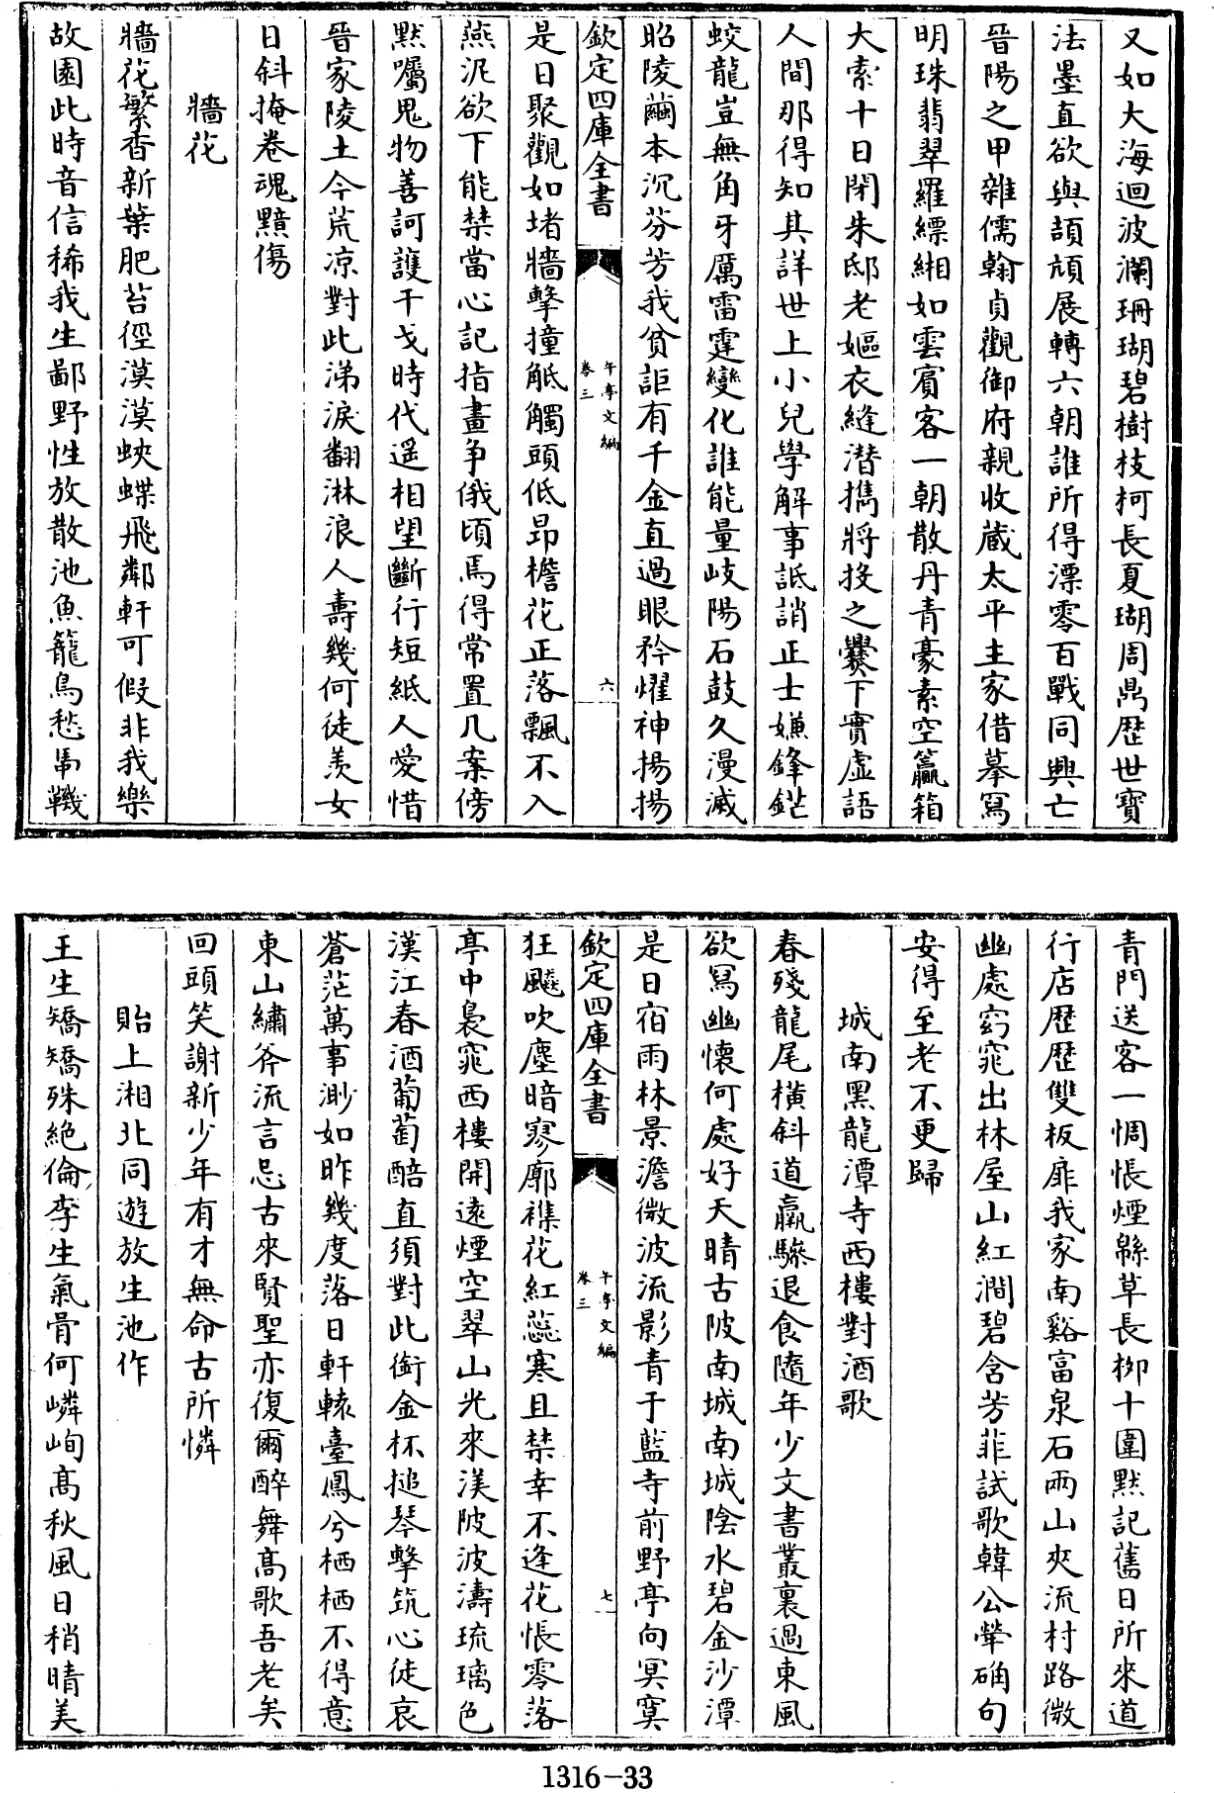 又如大海迴波瀾珊瑚碧樹枝柯長夏瑚周鼎歴世寶
法墨直欲與頡頏展轉六朝誰所得漂零百戰同興亡
晉陽之甲雜儒翰貞觀御府親收藏太平主家借摹寫
明珠翡翠羅縹緗如雲賓客一朝散丹青豪素空籯箱
大索十日閉朱邸老嫗衣縫潛擕將投之爨下實虛語
人間那得知其詳世上小兒學解事詆誚正士嫌鋒鋩
蛟龍豈無角牙厲雷霆變化誰能量岐陽石鼓久漫滅
昭陵繭本沉芬芳我貧詎有千金直過眼矜燿神揚揚
欽定四庫全書
午亭文編
卷三
六
是日聚觀如堵牆擊撞觝觸頭低昂檐花正落飄不入
燕泥欲下能禁當心記指畫爭俄頃焉得常置几案傍
黙囑鬼物善訶護干戈時代遥相望斷行短紙人愛惜
晉家陵土今荒凉對此涕淚翻淋浪人壽幾何徒羨女
日斜掩卷魂黯傷
牆花
牆花繁香新葉肥苔徑漠漠蛺蝶飛鄰軒可假非我樂
故園此時音信稀我生鄙野性放散池魚籠鳥愁馬鞿
青門送客一惆悵煙緜草長栁十圍黙記舊日所來道
行店歴歴雙板扉我家南谿富泉石兩山夾流村路微
幽處窈窕出林屋山紅澗碧含芳菲試歌韓公犖确句
安得至老不更歸
城南黑龍潭寺西樓對酒歌
春殘龍尾橫斜道羸驂退食隨年少文書叢裏過東風
欲寫幽懷何處好天晴古陂南城南城陰水碧金沙潭
是日宿雨林景澹微波流影青于藍寺前野亭向冥寞
欽定四庫全書
午亭文編
卷三
七
狂飈吹塵暗寥廓襍花紅蕊寒且禁幸不逢花悵零落
亭中裊窕西樓開遠煙空翠山光來渼陂波濤琉璃色
漢江春酒葡萄醅直須對此銜金杯搥琴擊筑心徒哀
蒼茫萬事渺如昨幾度落日軒轅臺鳳兮栖栖不得意
東山繡斧流言忌古來賢聖亦復爾醉舞髙歌吾老矣
回頭笑謝新少年有才無命古所憐
貽上湘北同遊放生池作
王生矯矯殊絶倫李生氣骨何嶙峋髙秋風日稍晴美
1316-33